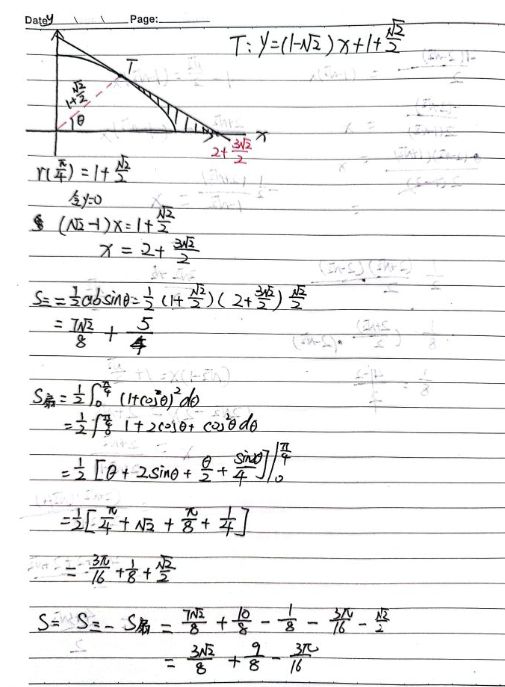 Date Page:
y
T: y=(1-√2)x+1+√2/2
T
1+√2/2
θ
x
2+3√2/2
r(π/4)=1+√2/2
令y=0
(√2-1)x=1+√2/2
x=2+3√2/2
S三=1/2absinθ=1/2(1+√2/2)(2+3√2/2)√2/2
=7√2/8+5/4
S扇=1/2∫₀^(π/4)(1+cosθ)²dθ
=1/2∫₀^(π/4)1+2cosθ+cos²θdθ
=1/2[θ+2sinθ+θ/2+sin2θ/4]|₀^(π/4)
=1/2[π/4+√2+π/8+1/4]
=3π/16+1/8+√2/2
S=S三-S扇=7√2/8+10/8-1/8-3π/16-√2/2
=3√2/8+9/8-3π/16